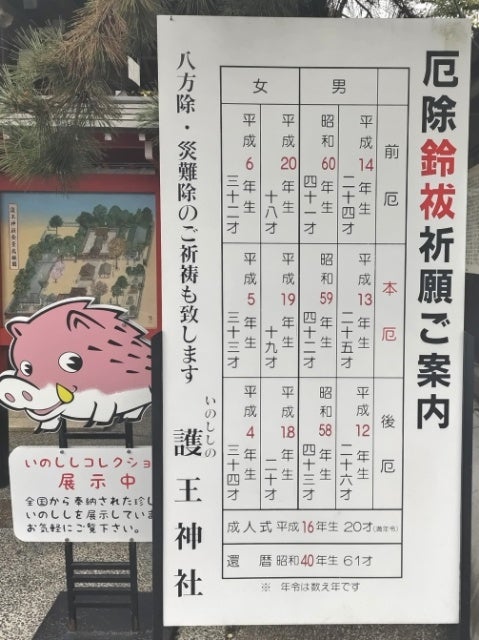 厄除鈴祓祈願ご案内
男
女
前厄
平成14年生
二十四才
昭和60年生
四十一才
平成20年生
十八才
平成6年生
三十二才
本厄
平成13年生
二十五才
昭和59年生
四十二才
平成19年生
十九才
平成5年生
三十三才
後厄
平成12年生
二十六才
昭和58年生
四十三才
平成18年生
二十才
平成4年生
三十四才
成人式 平成16年生 20才(満年令)
還暦 昭和40年生 61才
※ 年令は数え年です
八方除・災難除のご祈祷も致します
いのししの
護王神社
いのししコレクショ
展示中
全国から奉納された珍し
いのししを展示していま
お気軽にご覧下さい。